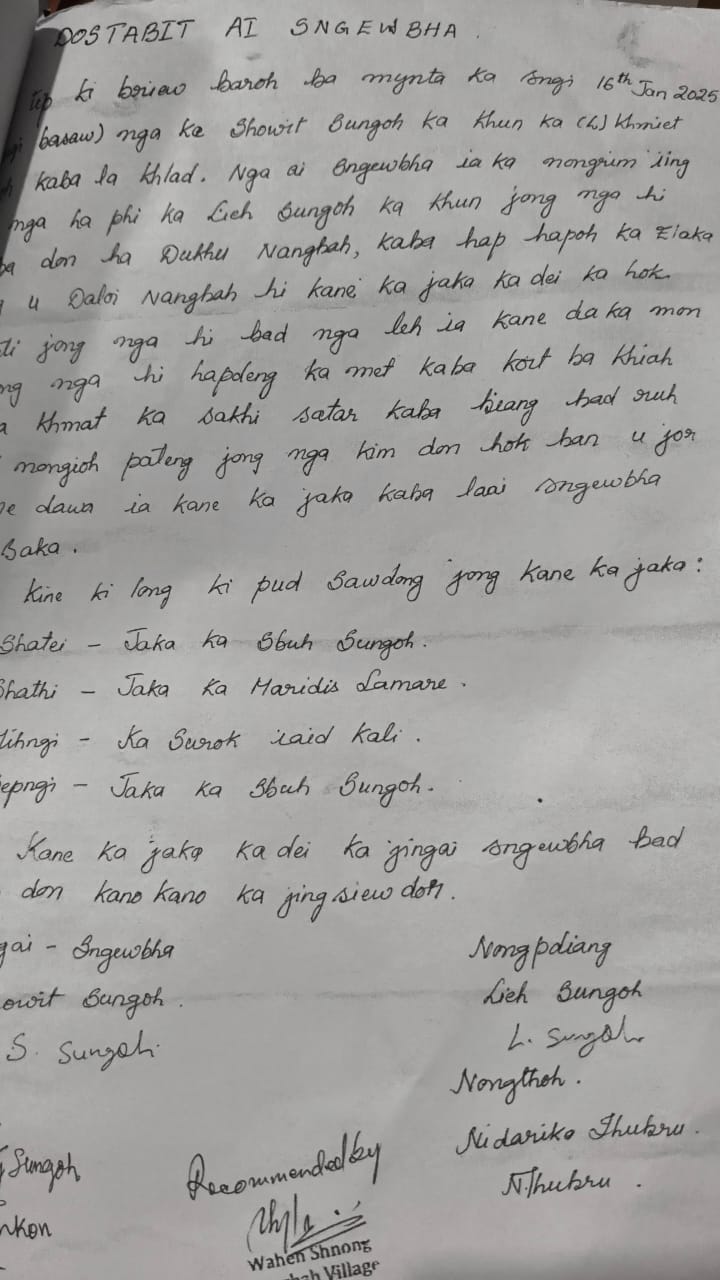 DOSTABIT AI SNGEWBHA.
Tip ki briew baroh ba mynta ka sngi 16th Jan 2025
basaw) nga ka Showit Sungoh ka khun ka (L) Khmiet
kaba la khlad. Nga ai sngewbha ia ka nongrim iing
nga ha phi ka Lieh Sungoh ka khun jong nga hi
don ha Dukhu Nangbah, kaba hap hapoh ka Elaka
u Daloi Nangbah hi kane ka jaka ka dei ka hok
jong nga hi bad nga leh ia kane da ka mon
nga hi hapdeng ka met kaba kort ba khiah
khmat ka sakhi satar kaba biang bad ruh
nongioh pateng jong nga kim don hok ban u jor
dawa ia kane ka jaka kaba laai sngewbha
Baka.
Kine ki long ki pud sawdong jong kane ka jaka:
Shatei - Jaka ka Sbuh Sungoh.
Shathi - Jaka ka Maridis Lamare.
ihngi - Ka Surok iaid kali.
epngi - Jaka ka Sbuh Sungoh.
Kane ka jaka ka dei ka jingai sngewbha bad
don kano kano ka jingsiew doh.
gai - Sngewbha
Nongpdiang
owit Sungoh.
Lieh Sungoh
S. Sungoh.
L. Sungoh
Nongthoh.
Nidariko Thubru.
N.Thubru.
Sungoh
Recommended by
nkon
Wahen Shnong
bah Village